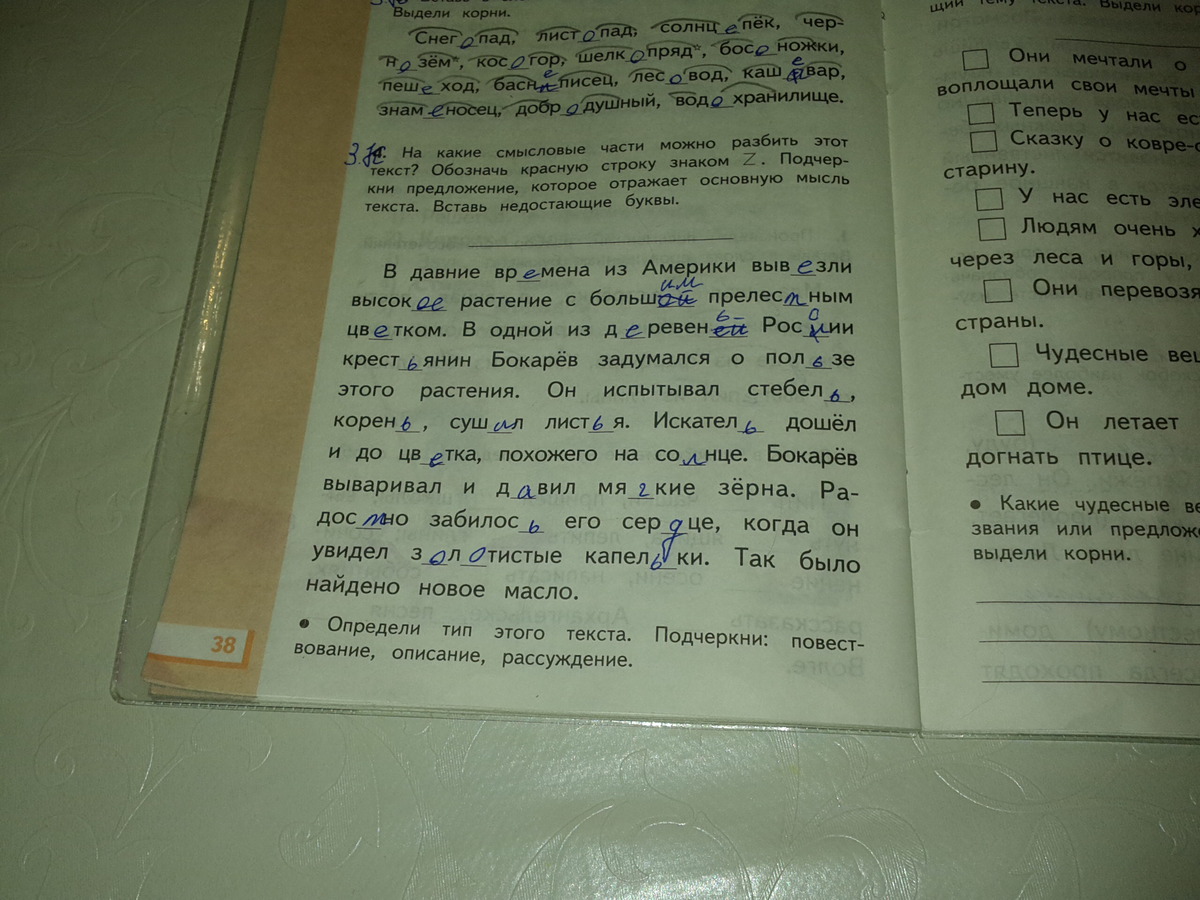 Выдели корни.
Снегопад, листопад, солнцепёк, чер-
нозём*, косогор, шелкопряд*, босоножки,
пешеход, баснеписец, лесовод, кашевар,
знаменосец, добродушный, водохранилище.
3. На какие смысловые части можно разбить этот
текст? Обозначь красную строку знаком Z. Подчер-
кни предложение, которое отражает основную мысль
текста. Вставь недостающие буквы.
В давние времена из Америки вывезли
высокое растение с большим прелестным
цветком. В одной из деревень России
крестьянин Бокарёв задумался о пользе
этого растения. Он испытывал стебель,
корень, сушил листья. Искатель дошёл
и до цветка, похожего на солнце. Бокарёв
вываривал и давил мягкие зёрна. Ра-
достно забилось его сердце, когда он
увидел золотистые капельки. Так было
найдено новое масло.
• Определи тип этого текста. Подчеркни: повест-
вование, описание, рассуждение.
38
щий тему текста. Выдели
Они мечтали о
воплощали свои мечты
Теперь у нас
Сказку о
старину.
У нас есть
Людям очень
через леса и горы,
Они
страны.
Чудесные
дом доме.
Он летает
догнать птице.
• Какие чудесные
звания или
выдели корни.